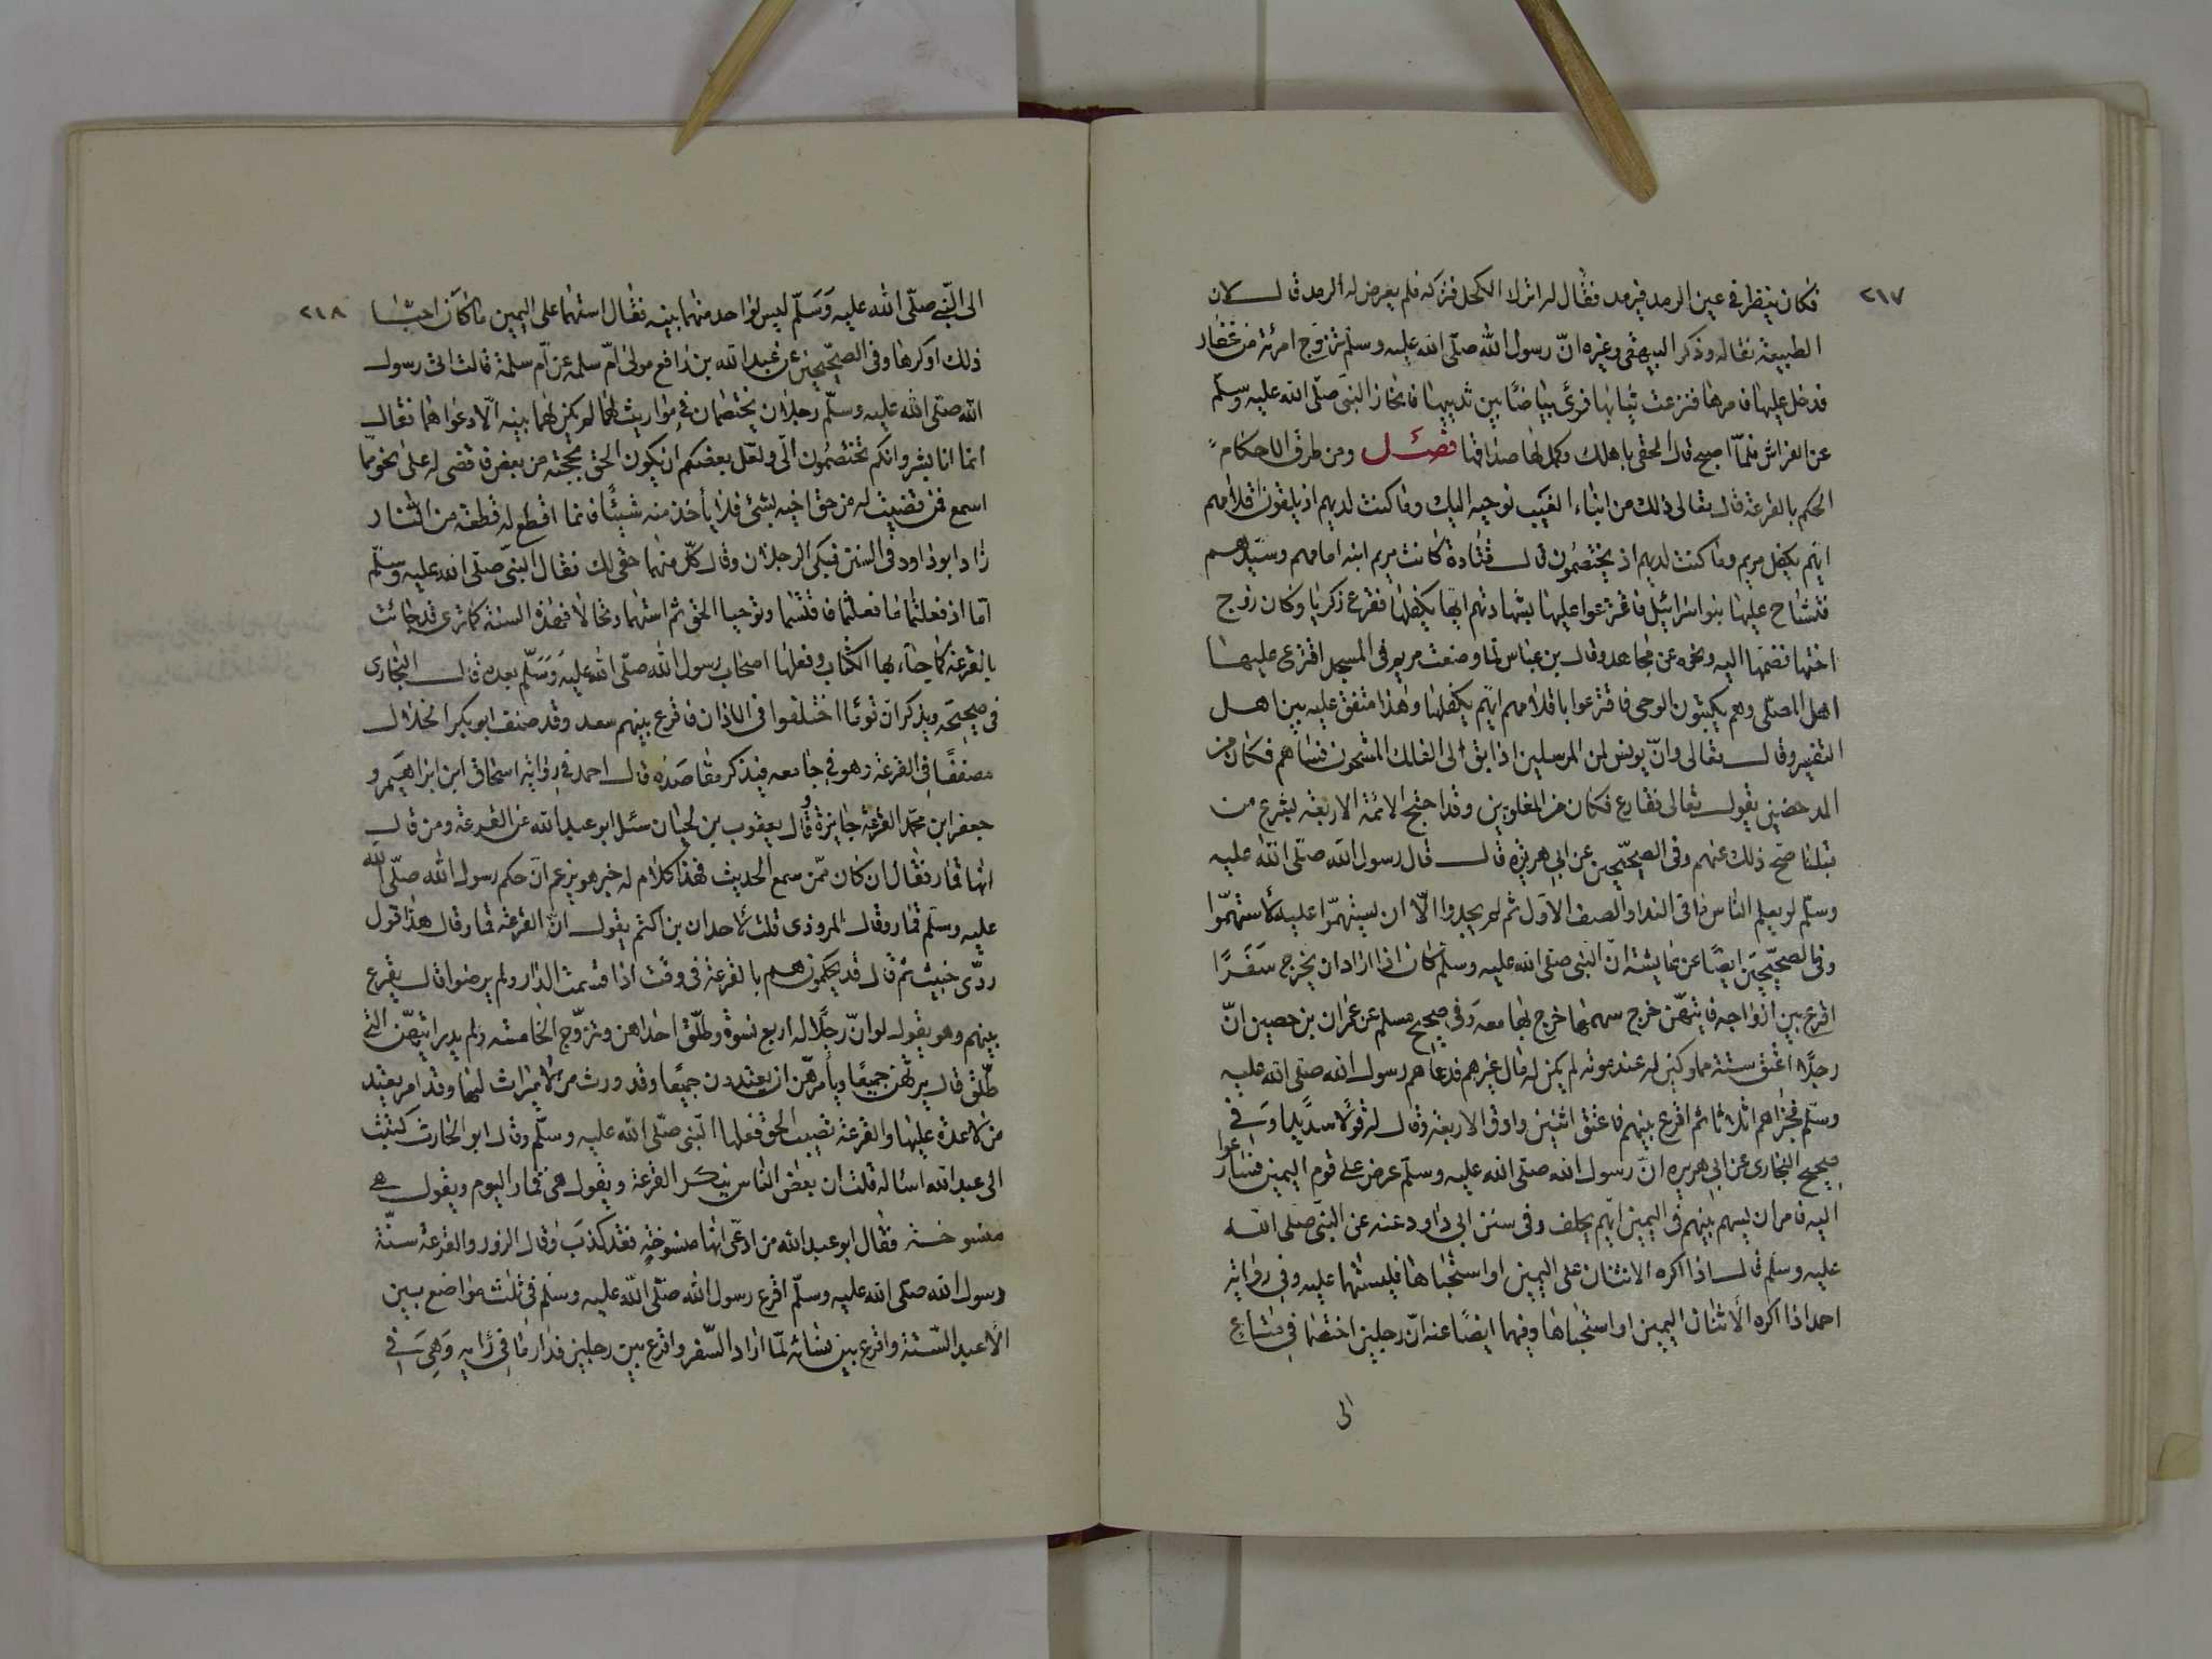 ٢١٧
فكان ينظر في عين الرمد فيرمد فقال له اترك الكحل فتركه فلم يعرض له الرمد قال لان
الطبيعة نقاله وذكر البيهقي وغيره انّ رسول الله صلّى الله عليه وسلّم تزوّج امرئة من غفار
فدخل عليها فامرها فنزعت ثيابها فرئ بياضًا بين ثدييها فانحاز النبي صلّى الله عليه وسلّم
عن الفراش فلمّا اصبح قال الحقي باهلك وكمل لها صداقها فصل ومن طرق الاحكام
الحكم بالقرعة قال تعالى ذلك من انباء الغيب نوحيه اليك وما كنت لديهم اذ يلقون اقلامهم
ايّهم يكفل مريم وما كنت لديهم اذ يختصمون قال قتادة كانت مريم ابنة امامهم وسيّدهم
فتشاح عليها بنو اسرائيل فاقترعوا عليها بسهامهم ايّها يكفلها فقرع زكريا وكان زوج
اختها فضمّها اليه ونحوه عن مجاهد وقال بن عباس لمّا وضعت مريم في المسجد اقترع عليها
اهل المصلّى وهم يكتبون الوحي فاقترعوا باقلامهم ايّهم يكفلها وهذا متفق عليه بين اهل
التفسير وقال تعالى وانّ يونس لمن المرسلين اذ ابق الى الفلك المشحون فساهم فكان من
المدحضين يقول تعالى فقارع فكان من المغلوبين وقد احتج الائمّة الاربعة بشرع من
قبلنا صحّ ذلك عنهم وفي الصحيحين عن ابي هريرة قال قال رسول الله صلّى الله عليه
وسلّم لو يعلم الناس ما في الندا والصف الاول ثم لم يجدوا الّا ان يستهمّوا عليه لاستهمّوا
وفي الصحيحين ايضًا عن عايشة انّ النبي صلى الله عليه وسلم كان اذا اراد ان يخرج سفرًا
اقرع بين ازواجه فايّتهنّ خرج سهمها خرج بها معه وفي صحيح مسلم عن عمران بن حصين انّ
رجلًا اعتق ستة مملوكين له عند موته لم يكن له مال غيرهم فدعاهم رسول الله صلى الله عليه
وسلّم فجزاهم اثلاثا ثم اقرع بينهم فاعتق اثنين وارق الاربعة وقال له قولًا سديدا وفي
صحيح البخاري عن ابي هريره انّ رسول الله صلى الله عليه وسلّم عرض على قوم اليمين فتسارعوا
اليه فامر ان يسهم بينهم في اليمين ايّهم يحلف وفي سنن ابي داود عنه عن النبي صلى الله
عليه وسلم قال اذا اكره الاثنان على اليمين او استحباها فليستهما عليه وفي رواية
احمد اذا اكره الاثنان اليمين او استحباها وفيهما ايضًا عنه انّ رجلين اختصما في متاع
الى
٢١٨
الى النّبي صلّى الله عليه وسلّم ليس لواحد منهما بينه فقال استهما على اليمين ما كان احبّا
ذلك او كرها وفي الصحيحين عن عبد الله بن رافع مولى امّ سلمه عن امّ سلمة قالت اتى رسول
الله صلى الله عليه وسلّم رجلان يختصمان في مواريث لهما لم يكن لهما بينه الّا دعواهما فقال
انما انا بشر وانكم تختصمون الّي ولعلّ بعضكم ان يكون الحق بحجته من بعض فاقضى له على نحو ممّا
اسمع فمن قضيت له من حق اخيه بشئ فلا يأخذ منه شيئًا فانما اقطع له قطعة من النار
زاد ابو داود في السنن فبكى الرجلان وقال كلّ منهما حقى لك فقال النبي صلى الله عليه وسلّم
امّا اذ فعلتما ما فعلتما فاقتسما وتوخيا الحق ثم استهما وتحالا فهذه السنة كما ترى قد جائت
بالقرعة كما جآء بها الكتاب وفعلها اصحاب رسول الله صلّى الله عليه وسلّم بعده قال البخاري
في صحيحه ويذكر انّ قومًا اختلفوا في الاذان فاقرع بينهم سعد وقد صنف ابو بكر الخلال
مصنفًا في القرعة وهو في جامعه فنذكر مقاصده قال احمد في رواية اسحاق ابن ابراهيم و
جعفر ابن محمّد القرعة جايزة وقال يعقوب بن بختيان سئل ابو عبد الله عن القرعة ومن قال
انها قمار فقال ان كان ممّن سمع الحديث فهذا كلام له خبر هو يزعم انّ حكم رسول الله صلّى الله
عليه وسلّم قمار وقال المروذي قلت لاحد ان بن اكثم يقول انّ القرعة قمار قال هذا قول
ردّى خبيث ثم قال قد يحكمون هم بالقرعة في وقت اذا قسمت الدار ولم يرضوا قال يقرع
بينهم وهو يقول لو انّ رجلًا له اربع نسوة وطلّق احداهن وتزوّج الخامسة ولم يدر ايّتهنّ التي
طلّق قال يرثهن جميعًا ويأمرهنّ ان يعتددن جميعًا وقد ورث من لا ميراث لها وقد امر بعتد
من لا عدة عليها والقرعة تصيب الحق فعلها النّبي صلّى الله عليه وسلّم وقال ابو الحارث كتبت
الى عبد الله اسأله قلت ان بعض الناس ينكر القرعة ويقول هى قمار اليوم ويقول هي
منسوخة فقال ابو عبد الله من ادّعى انها منسوخة فقد كذب وقال الزور والقرعة سنّة
رسول الله صلى الله عليه وسلّم اقرع رسول الله صلّى الله عليه وسلم في ثلث مواضع بين
الاعبد الستّة واقرع بين نسائه لمّا اراد السّفر واقرع بين رجلين فدارما في دابه وهي في